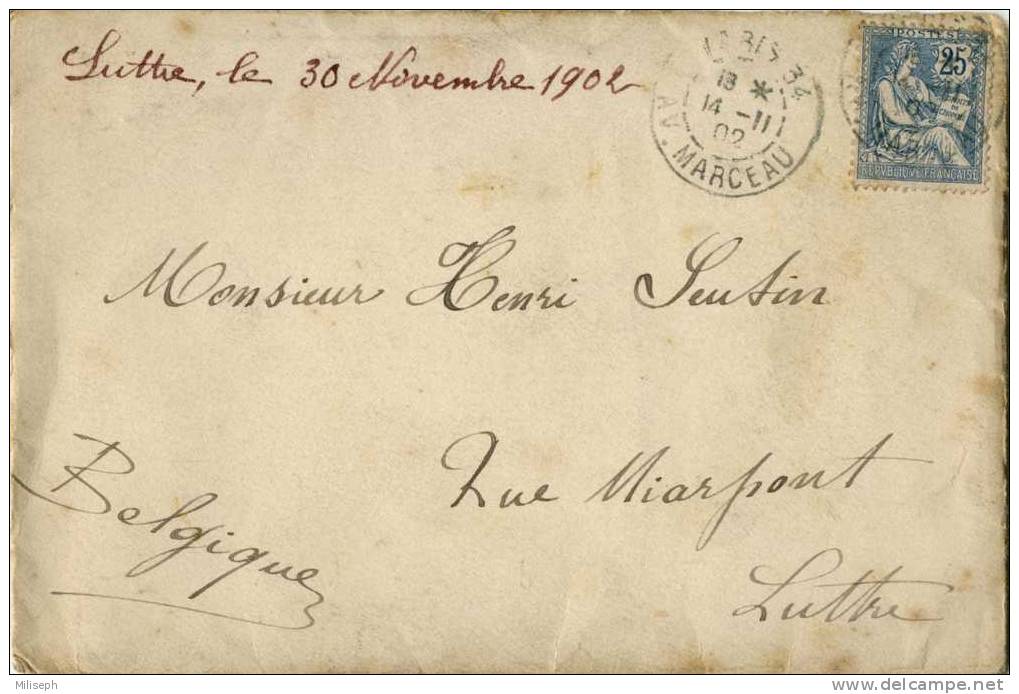 Luttre, le 30 Novembre 1902
PARIS 34
18 *
14 -11
02
AV. MARCEAU
POSTES
25
REPVBLIQVE FRANÇAISE
Monsieur Henri Seutin
Rue Miarpont
Luttre
Belgique
© Miliseph
delcampe.net